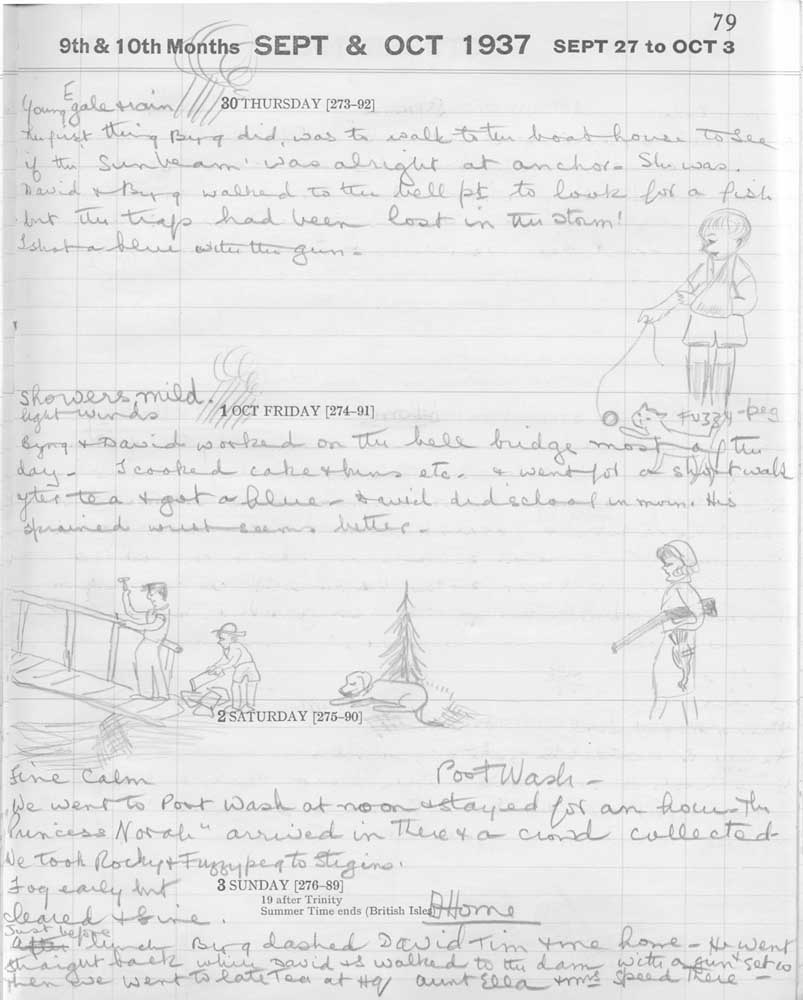 79
9th & 10th Months SEPT & OCT 1937 SEPT 27 to OCT 3
Young E gale & rain 30 THURSDAY [273-92]
The first thing Byng did, was to walk to the boat house to see
if the 'Sunbeam' was alright at anchor - She was.
David & Byng walked to the bell pt to look for a fish
but the traps had been lost in the storm!
I shot a blue with the gun -
Showers, mild.
light winds 1 OCT FRIDAY [274-91]
Fuzzy-peg
Byng & David worked on the hell bridge most of the
day - I cooked cake & buns etc. & went for a short walk
after tea & got a blue - David did school in morn. His
sprained wrist seems better -
2 SATURDAY [275-90]
Fine Calm Port Wash -
We went to Port Wash at noon & stayed for an hour - The
Princess Norah" arrived in There & a crowd collected -
We took Rocky & Fuzzypeg to Stigins.
Fog early but 3 SUNDAY [276-89]
19 after Trinity
cleared & fine. Summer Time ends (British Isles) Home
Just before
After lunch Byng dashed David Tim & me home - He went
straight back while David & I walked to the dam with a gun & set
Then we went to late Tea at HQ aunt Ella & Mrs Speed There -